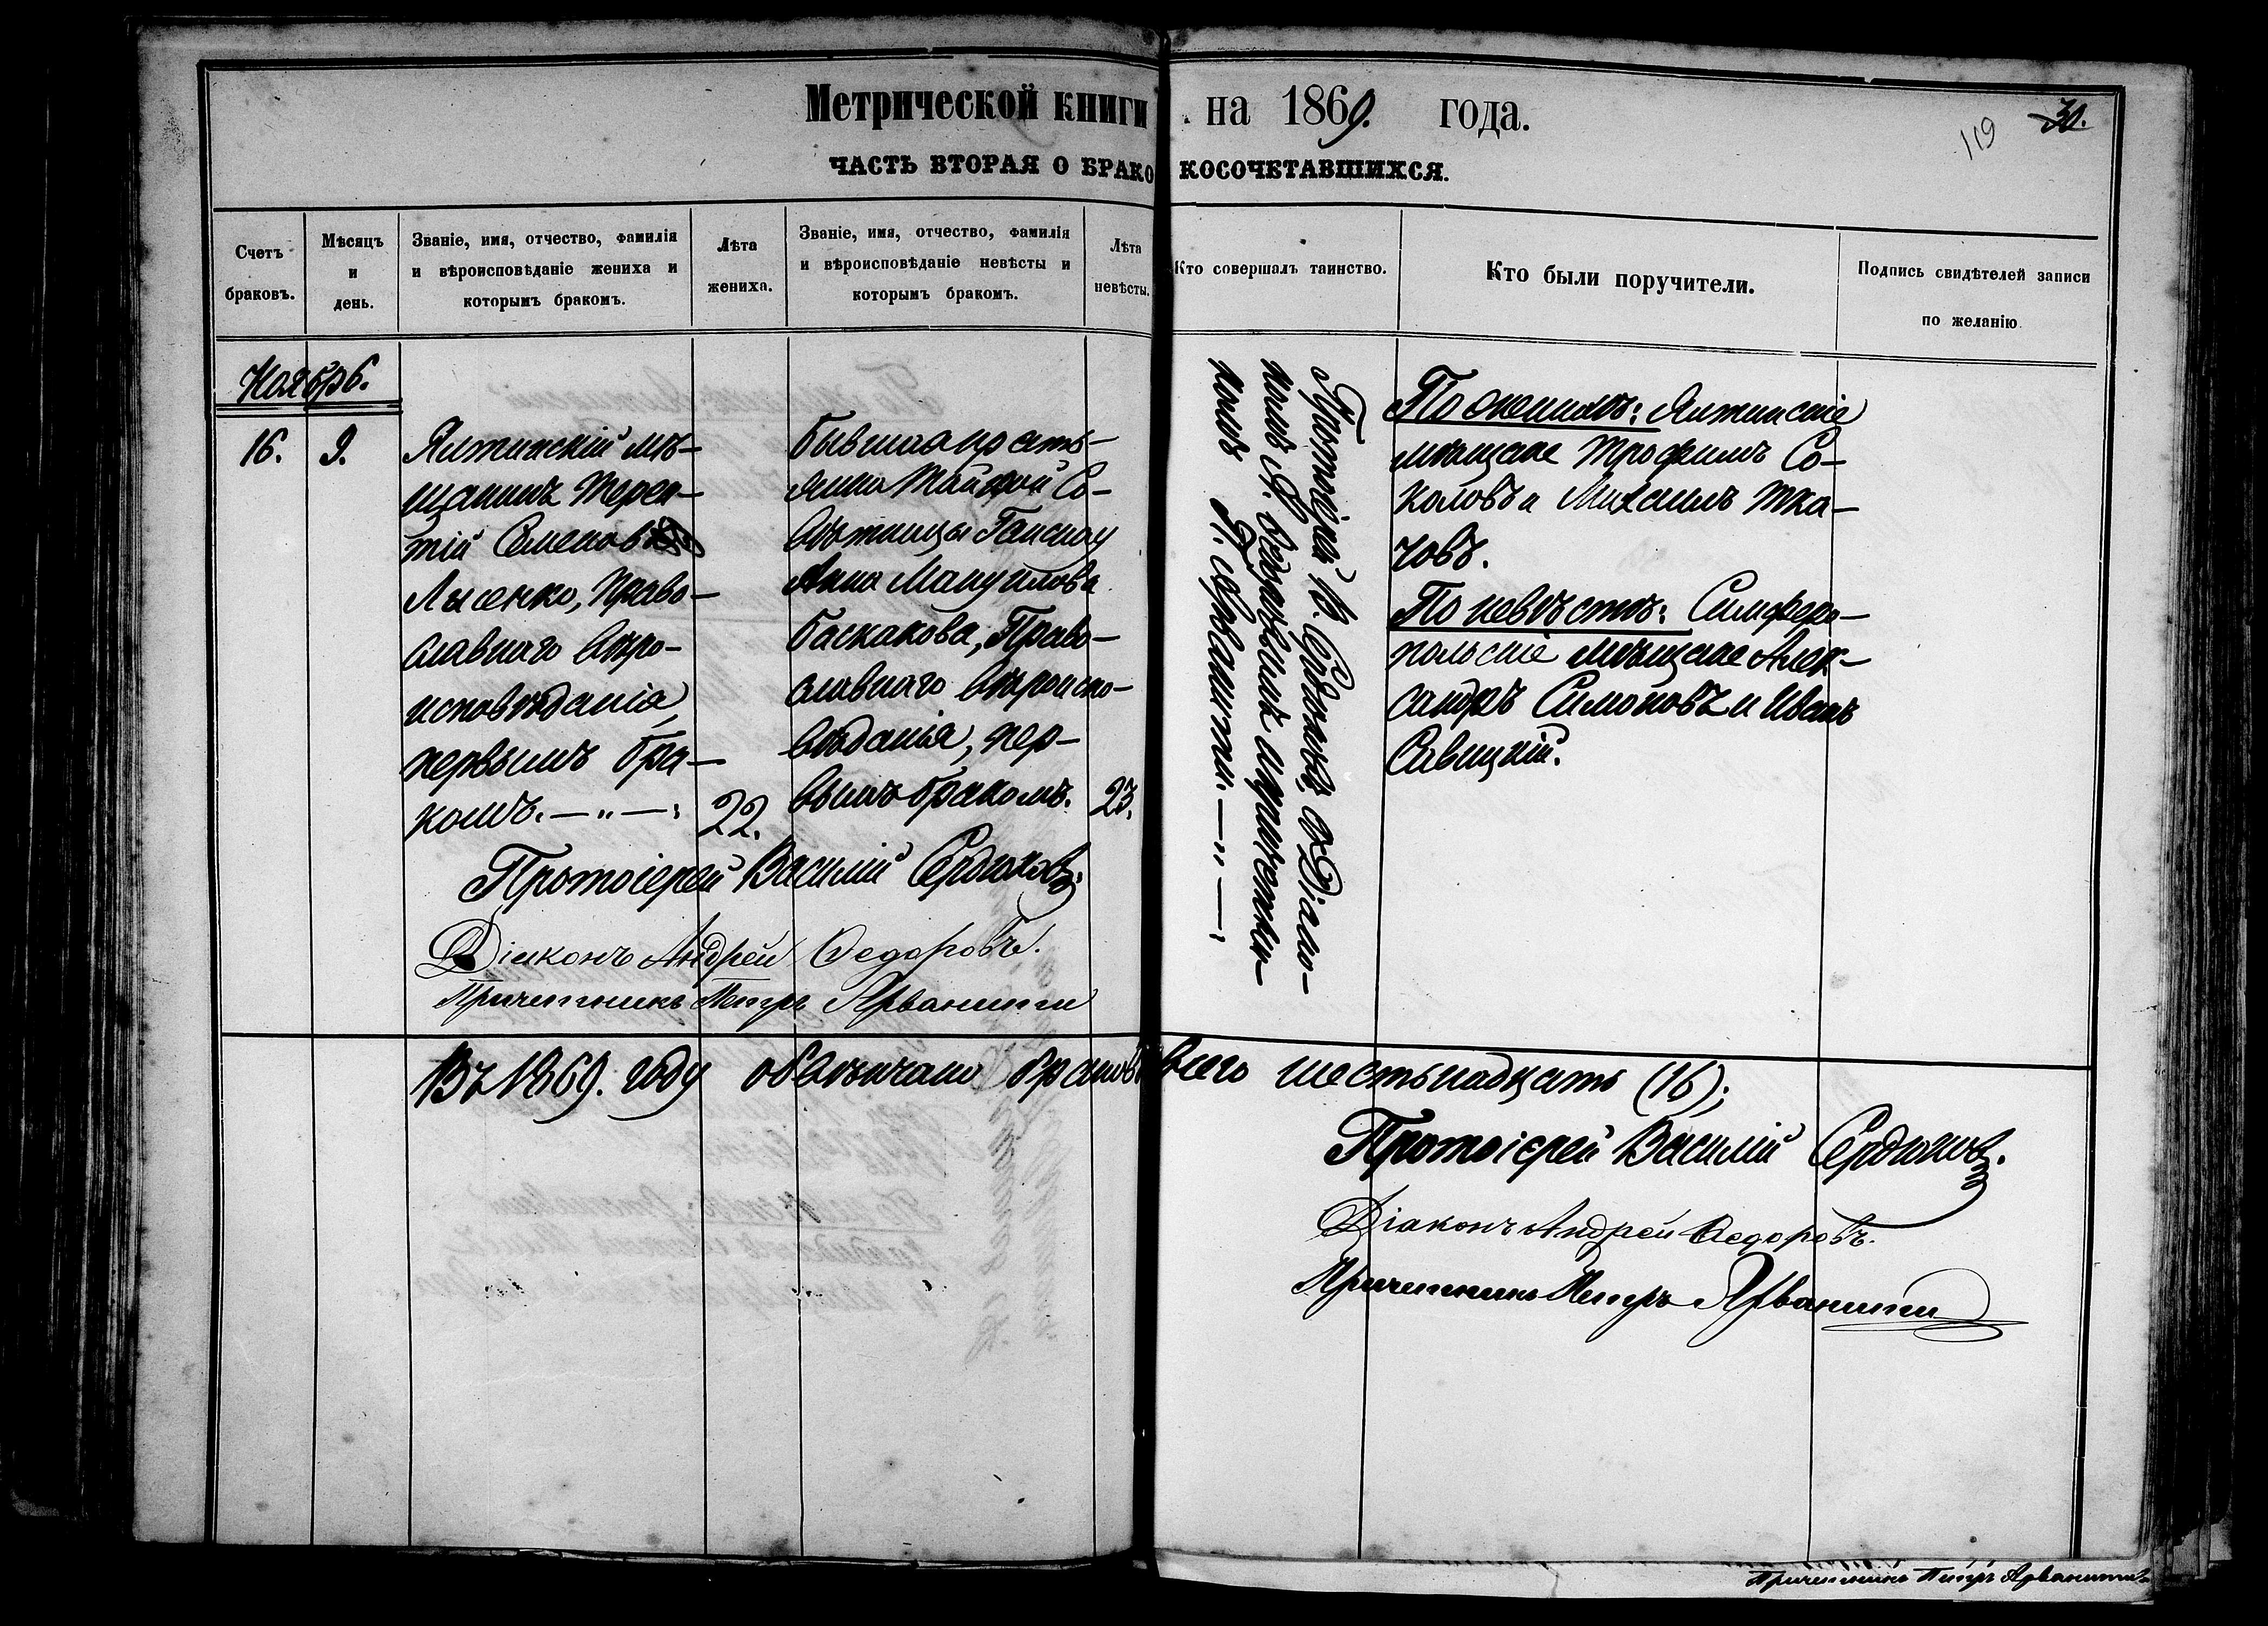 Метрической книги на 1869. года.
119 30.
ЧАСТЬ ВТОРАЯ О БРАКОКОСОЧЕТАВШИХСЯ.
Счетъ браковъ.
Мѣсяцъ и день.
Званіе, имя, отчество, фамилія и вѣроисповѣданіе жениха и которымъ бракомъ.
Лѣта жениха.
Званіе, имя, отчество, фамилія и вѣроисповѣданіе невѣсты и которымъ бракомъ.
Лѣта невѣсты.
Кто совершалъ таинство.
Кто были поручители.
Подпись свидѣтелей записи по желанію.
Ноябрь.
16. 9.
Ялтинскій мѣ-
щанинъ Терен-
тій Семеновъ
Лысенко, Право-
славнаго Вѣро-
исповѣданія,
первымъ бра-
комъ. — „ — :
22.
Бывшая крѣть-
янка Тайной Со-
вѣтницы
Анна Мануилова
Баскакова, Право-
славнаго Вѣроиспо-
вѣданія, пер-
вымъ бракомъ.
23.
Протоіерей В. Сердюковъ, съ Діако-
номъ А. Ѳедоровымъ и причетни-
комъ П. Арванити. — „ — ;
По женихѣ: Ялтинскіе
мѣщане Трофимъ Со-
коловъ и Михаилъ Тка-
човъ.
По невѣстѣ: Симферо-
польскіе мѣщане Алек-
сандръ Симоновъ и Иванъ
Савицкій.
Протоіерей Василій Сердюковъ.
Діаконъ Андрей Ѳедоровъ.
Причетникъ Петръ Арванити
Въ 1869. году обвѣнчано браковъ всего шестьнадцать (16);
Протоіерей Василій Сердюковъ.
Діаконъ Андрей Ѳедоровъ.
Причетникъ Петръ Арванити
Причетникъ Петръ Арванити